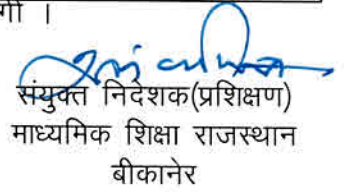 गी ।
संयुक्त निदेशक(प्रशिक्षण)
माध्यमिक शिक्षा राजस्थान
बीकानेर